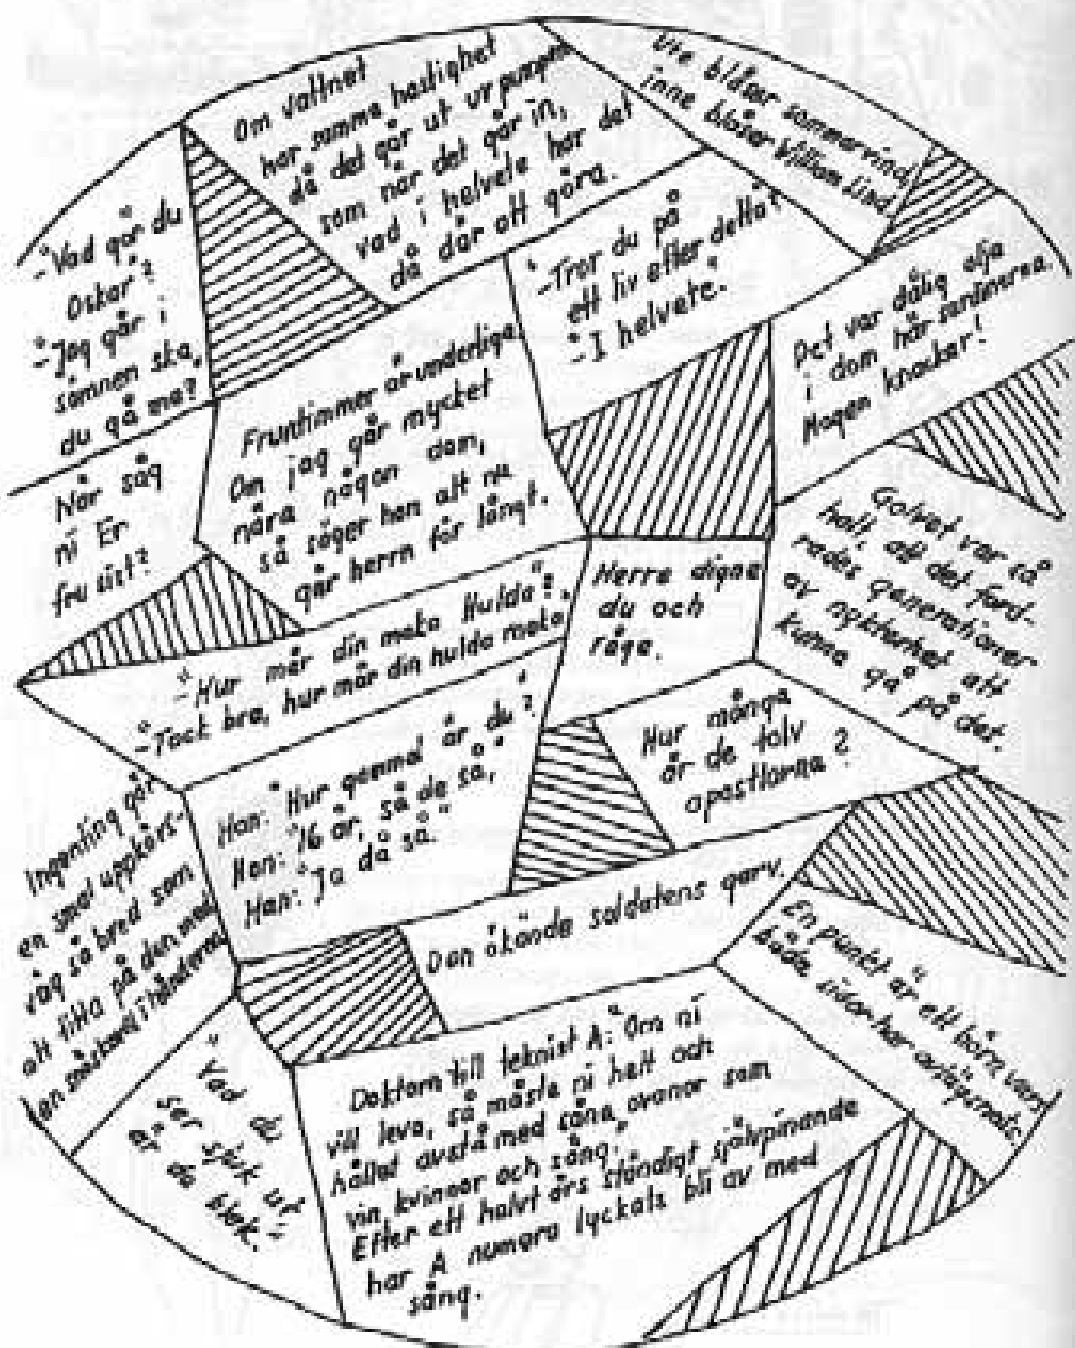 Om vattnet
har samma hastighet
då det går ut ur pumpen
som när det går in,
vad i helvete har det
då där att göra.
Ute blåser sommarvind,
inne blåser William Lind.
-"Vad går du
Oskar"?
-"Jag går i
sömnen ska,
du gå me?"
-"Tror du på
ett liv efter detta?"
-"I helvete."
Det var dålig olja
i dom här sardinerna.
Magen knackar!
Fruntimmer är underliga
Om jag går mycket
nära någon dam,
så säger hon att nu
går herrn för långt.
När såg
ni Er
fru sist?
Golvet var så
halt att det ford-
rades generationer
av nykterhet att
kunna gå på det.
Herre digne
du och
råga.
-"Hur mår din maka Hulda"?
-"Tack bra, hur mår din hulda maka
Hur många
är de tolv
apostlarna?
Han: "Hur gammal är du?"
Hon: "16 år, så de så,"
Han: "Ja då så."
Ingenting gör
en smal uppkörs-
väg så bred som
att titta på den med
ten snöskovel i händerna
Den ökände soldatens garv.
En punkt är ett hörn vars
båda sidor har avlägsnats.
"Vad du
ser sjuk ut
är du blek."
Doktorn till teknist A: "Om ni
vill leva, så måste ni helt och
hållet avstå med såna ovanor som
vin, kvinnor och sång."
Efter ett halvt års ständigt självpinande
har A numera lyckats bli av med
sång.